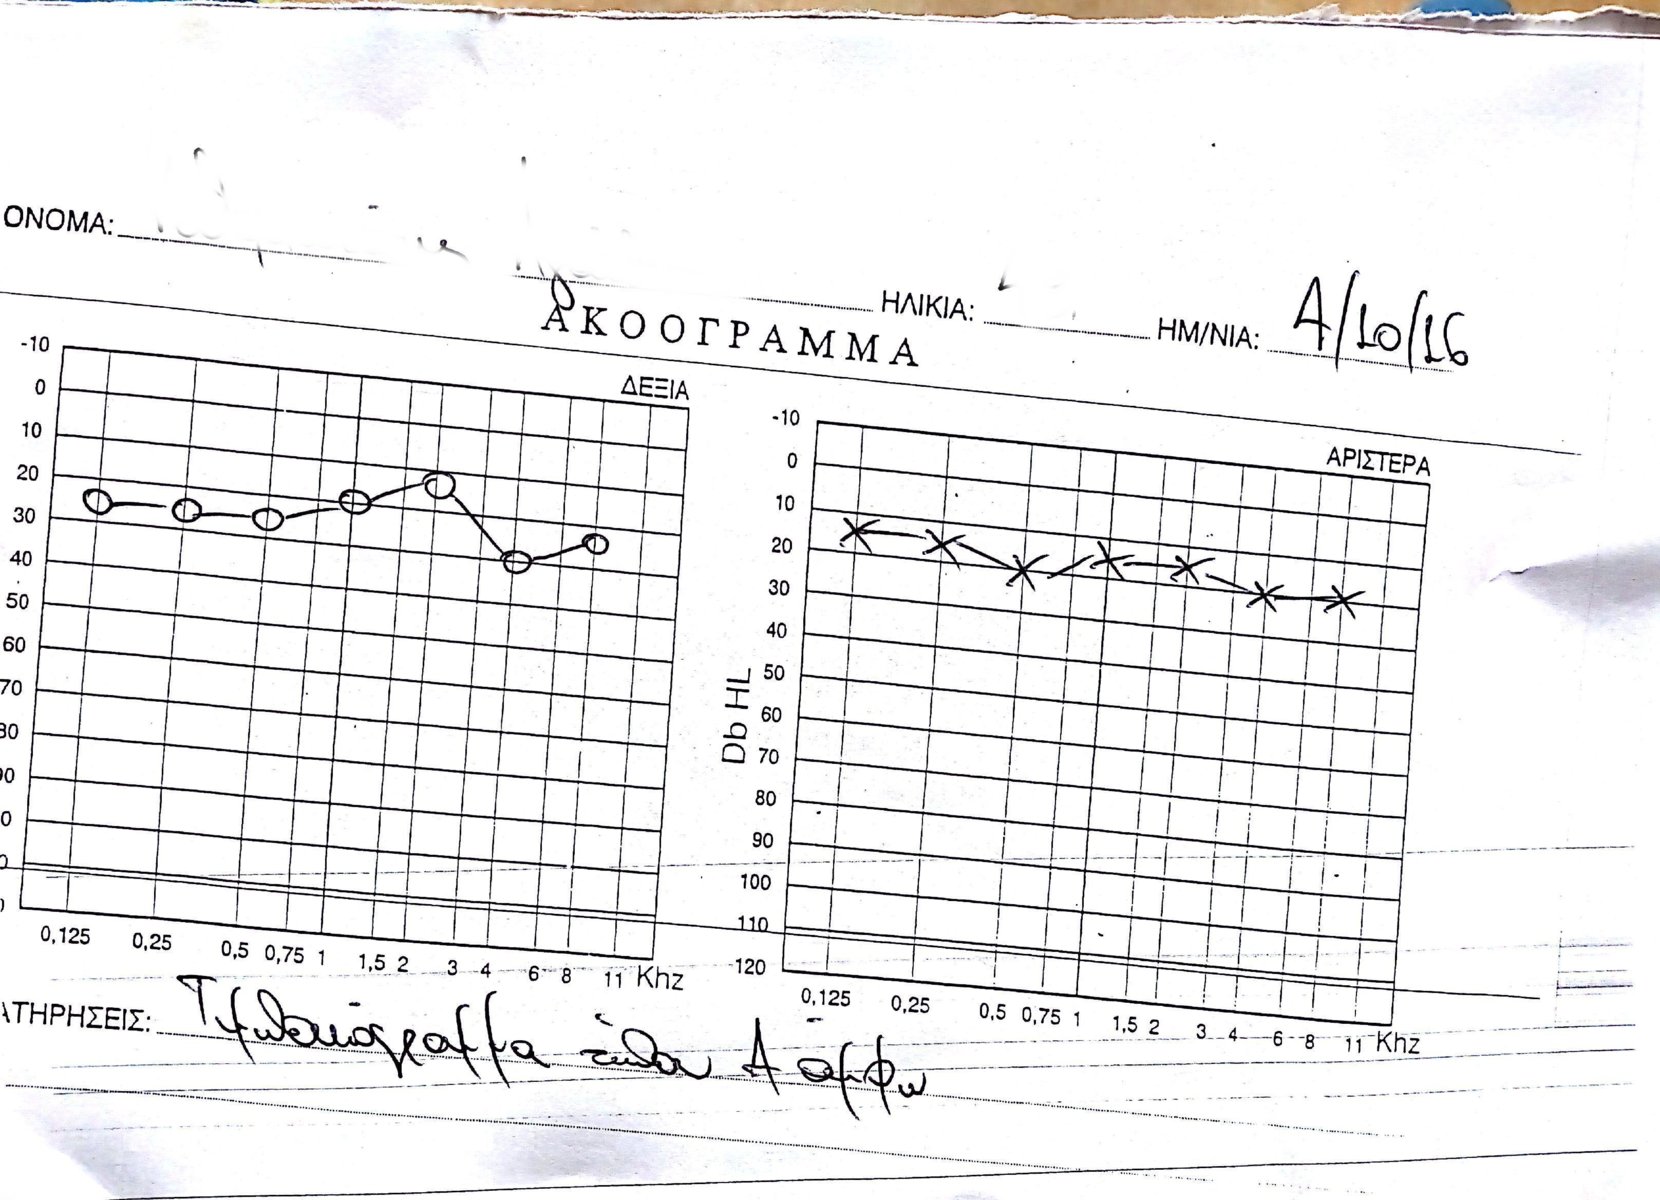 ΟΝΟΜΑ:
ΗΛΙΚΙΑ:
ΗΜ/ΝΙΑ: 4/10/16
ΑΚΟΟΓΡΑΜΜΑ
ΔΕΞΙΑ
-10
0
10
20
30
40
50
60
70
80
90
0
0
0
0,125 0,25 0,5 0,75 1 1,5 2 3 4 6 8 11 Khz
ΑΡΙΣΤΕΡΑ
-10
0
10
20
30
40
50
60
70
80
90
100
110
120
Db HL
0,125 0,25 0,5 0,75 1 1,5 2 3 4 6 8 11 Khz
ΑΤΗΡΗΣΕΙΣ: Τυμπανόγραμμα τύπου Α άμφω